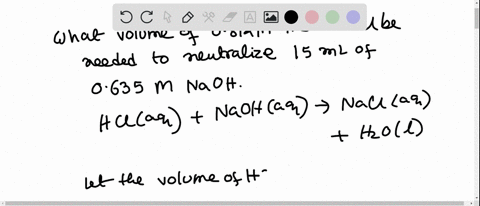 What volume of
needed to neutralize 15 mL of
0.635 M NaOH.
HCl(aq) + NaOH(aq) → NaCl(aq)
+ H2O(l)
Let the volume of H